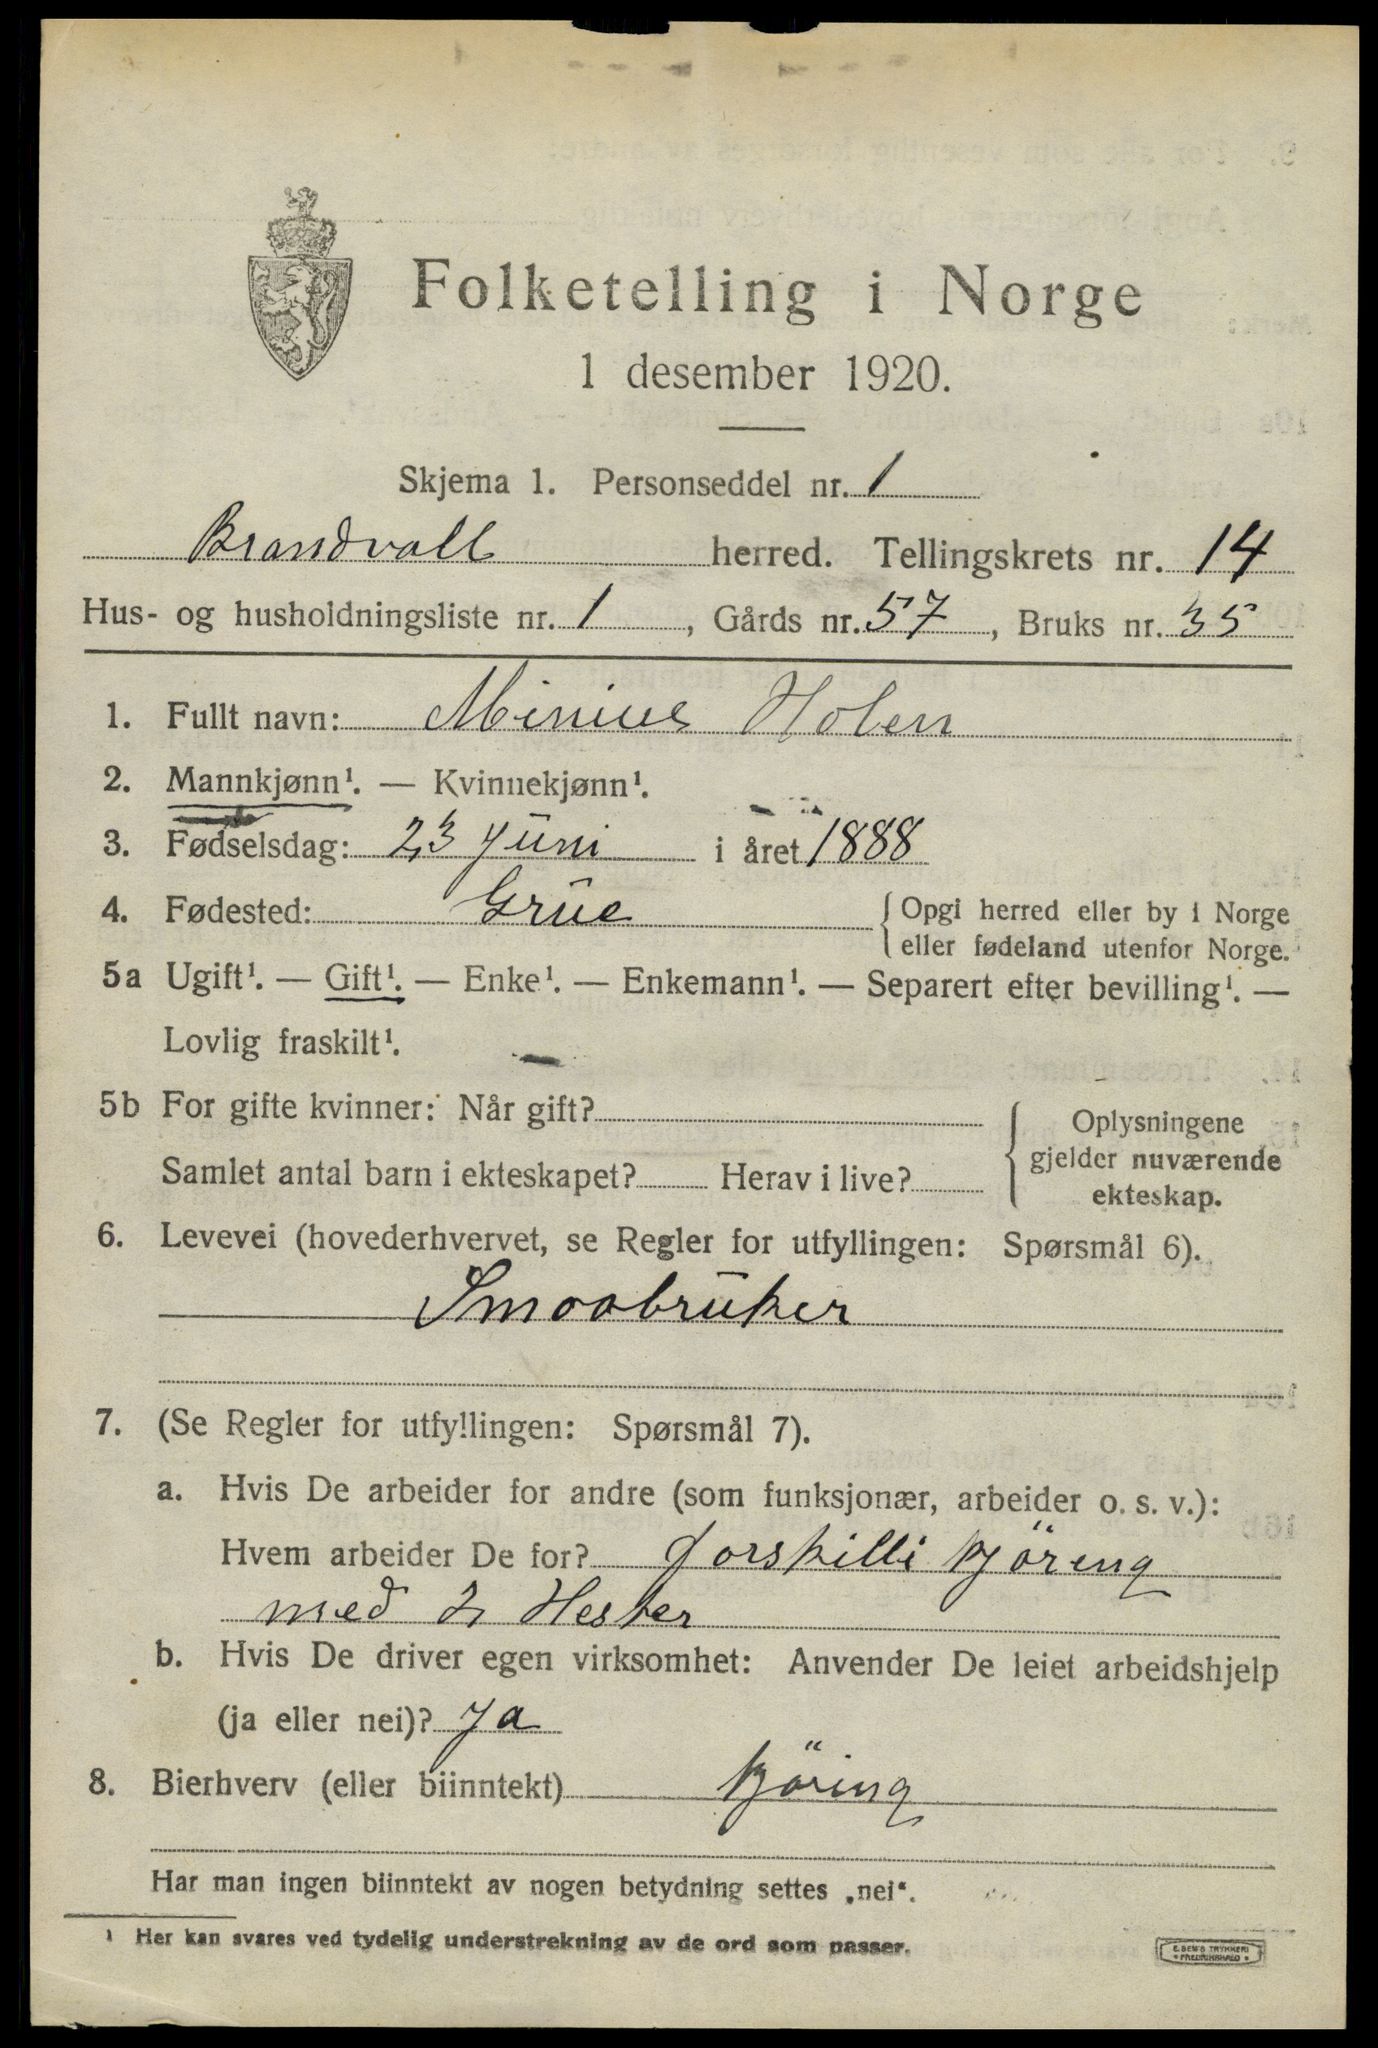 Folketelling i Norge
1 desember 1920.
Skjema 1. Personseddel nr. 1
Brandvall herred. Tellingskrets nr. 14
Hus- og husholdningsliste nr. 1, Gårds nr. 57, Bruks nr. 35
1. Fullt navn: Minius Holen
2. Mannkjønn¹. — Kvinnekjønn¹.
3. Fødselsdag: 23 Juni i året 1888
4. Fødested: Grue { Opgi herred eller by i Norge
eller fødeland utenfor Norge.
5a Ugift¹. — Gift¹. — Enke¹. — Enkemann¹. — Separert efter bevilling¹. —
Lovlig fraskilt¹.
5b For gifte kvinner: Når gift?
Samlet antal barn i ekteskapet? Herav i live?
Oplysningene
gjelder nuværende
ekteskap.
6. Levevei (hovederhvervet, se Regler for utfyllingen: Spørsmål 6).
Smaabruker
7. (Se Regler for utfyllingen: Spørsmål 7).
a. Hvis De arbeider for andre (som funksjonær, arbeider o. s. v.):
Hvem arbeider De for? forskilli kjöreng
med 2 Hester
b. Hvis De driver egen virksomhet: Anvender De leiet arbeidshjelp
(ja eller nei)? Ja
8. Bierhverv (eller biinntekt) kjöring
Har man ingen biinntekt av nogen betydning settes „nei“.
¹ Her kan svares ved tydelig understrekning av de ord som passer.
E. SEM'S TRYKKERI
• FREDRIKSHALD •